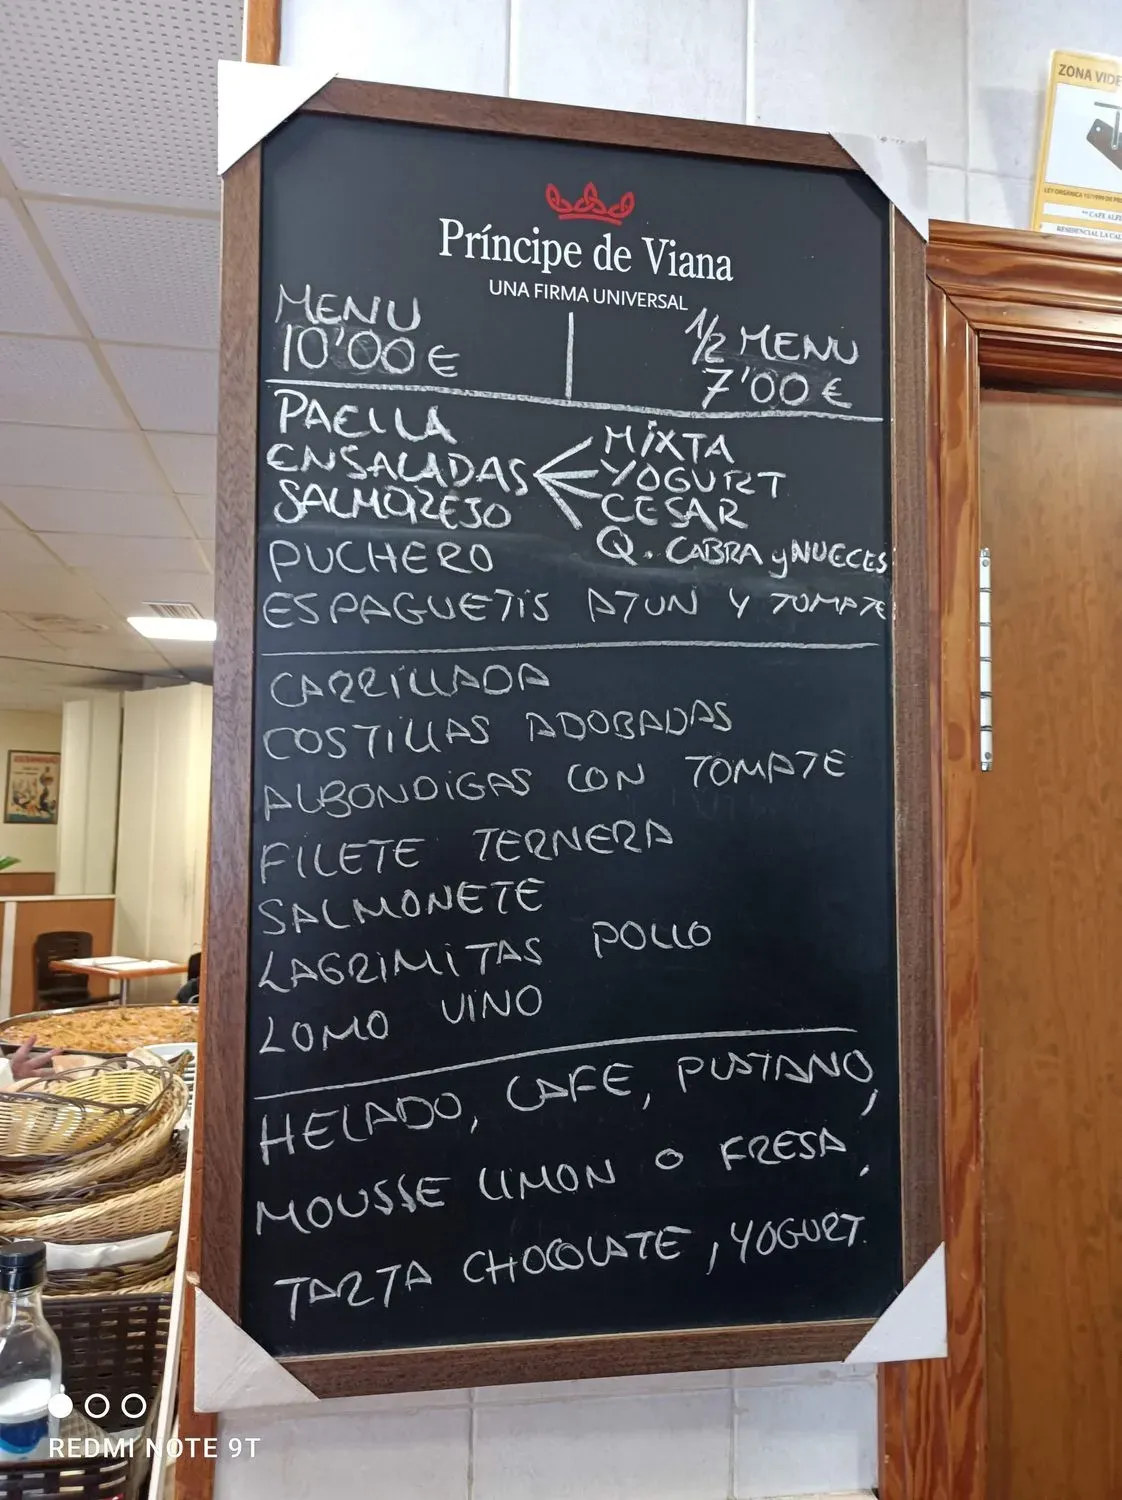 Príncipe de Viana
UNA FIRMA UNIVERSAL
MENU
10'00 €
1/2 MENU
7'00 €
PAELLA
ENSALADAS
MIXTA
YOGURT
CESAR
Q. CABRA y NUECES
SALMOREJO
PUCHERO
ESPAGUETIS ATUN Y TOMATE
CARRILLADA
COSTILLAS ADOBADAS
ALBONDIGAS CON TOMATE
FILETE TERNERA
SALMONETE
LAGRIMITAS POLLO
LOMO VINO
HELADO, CAFE, PLATANO,
MOUSSE LIMON O FRESA,
TARTA CHOCOLATE, YOGURT.
ZONA VIDE
REDMI NOTE 9T